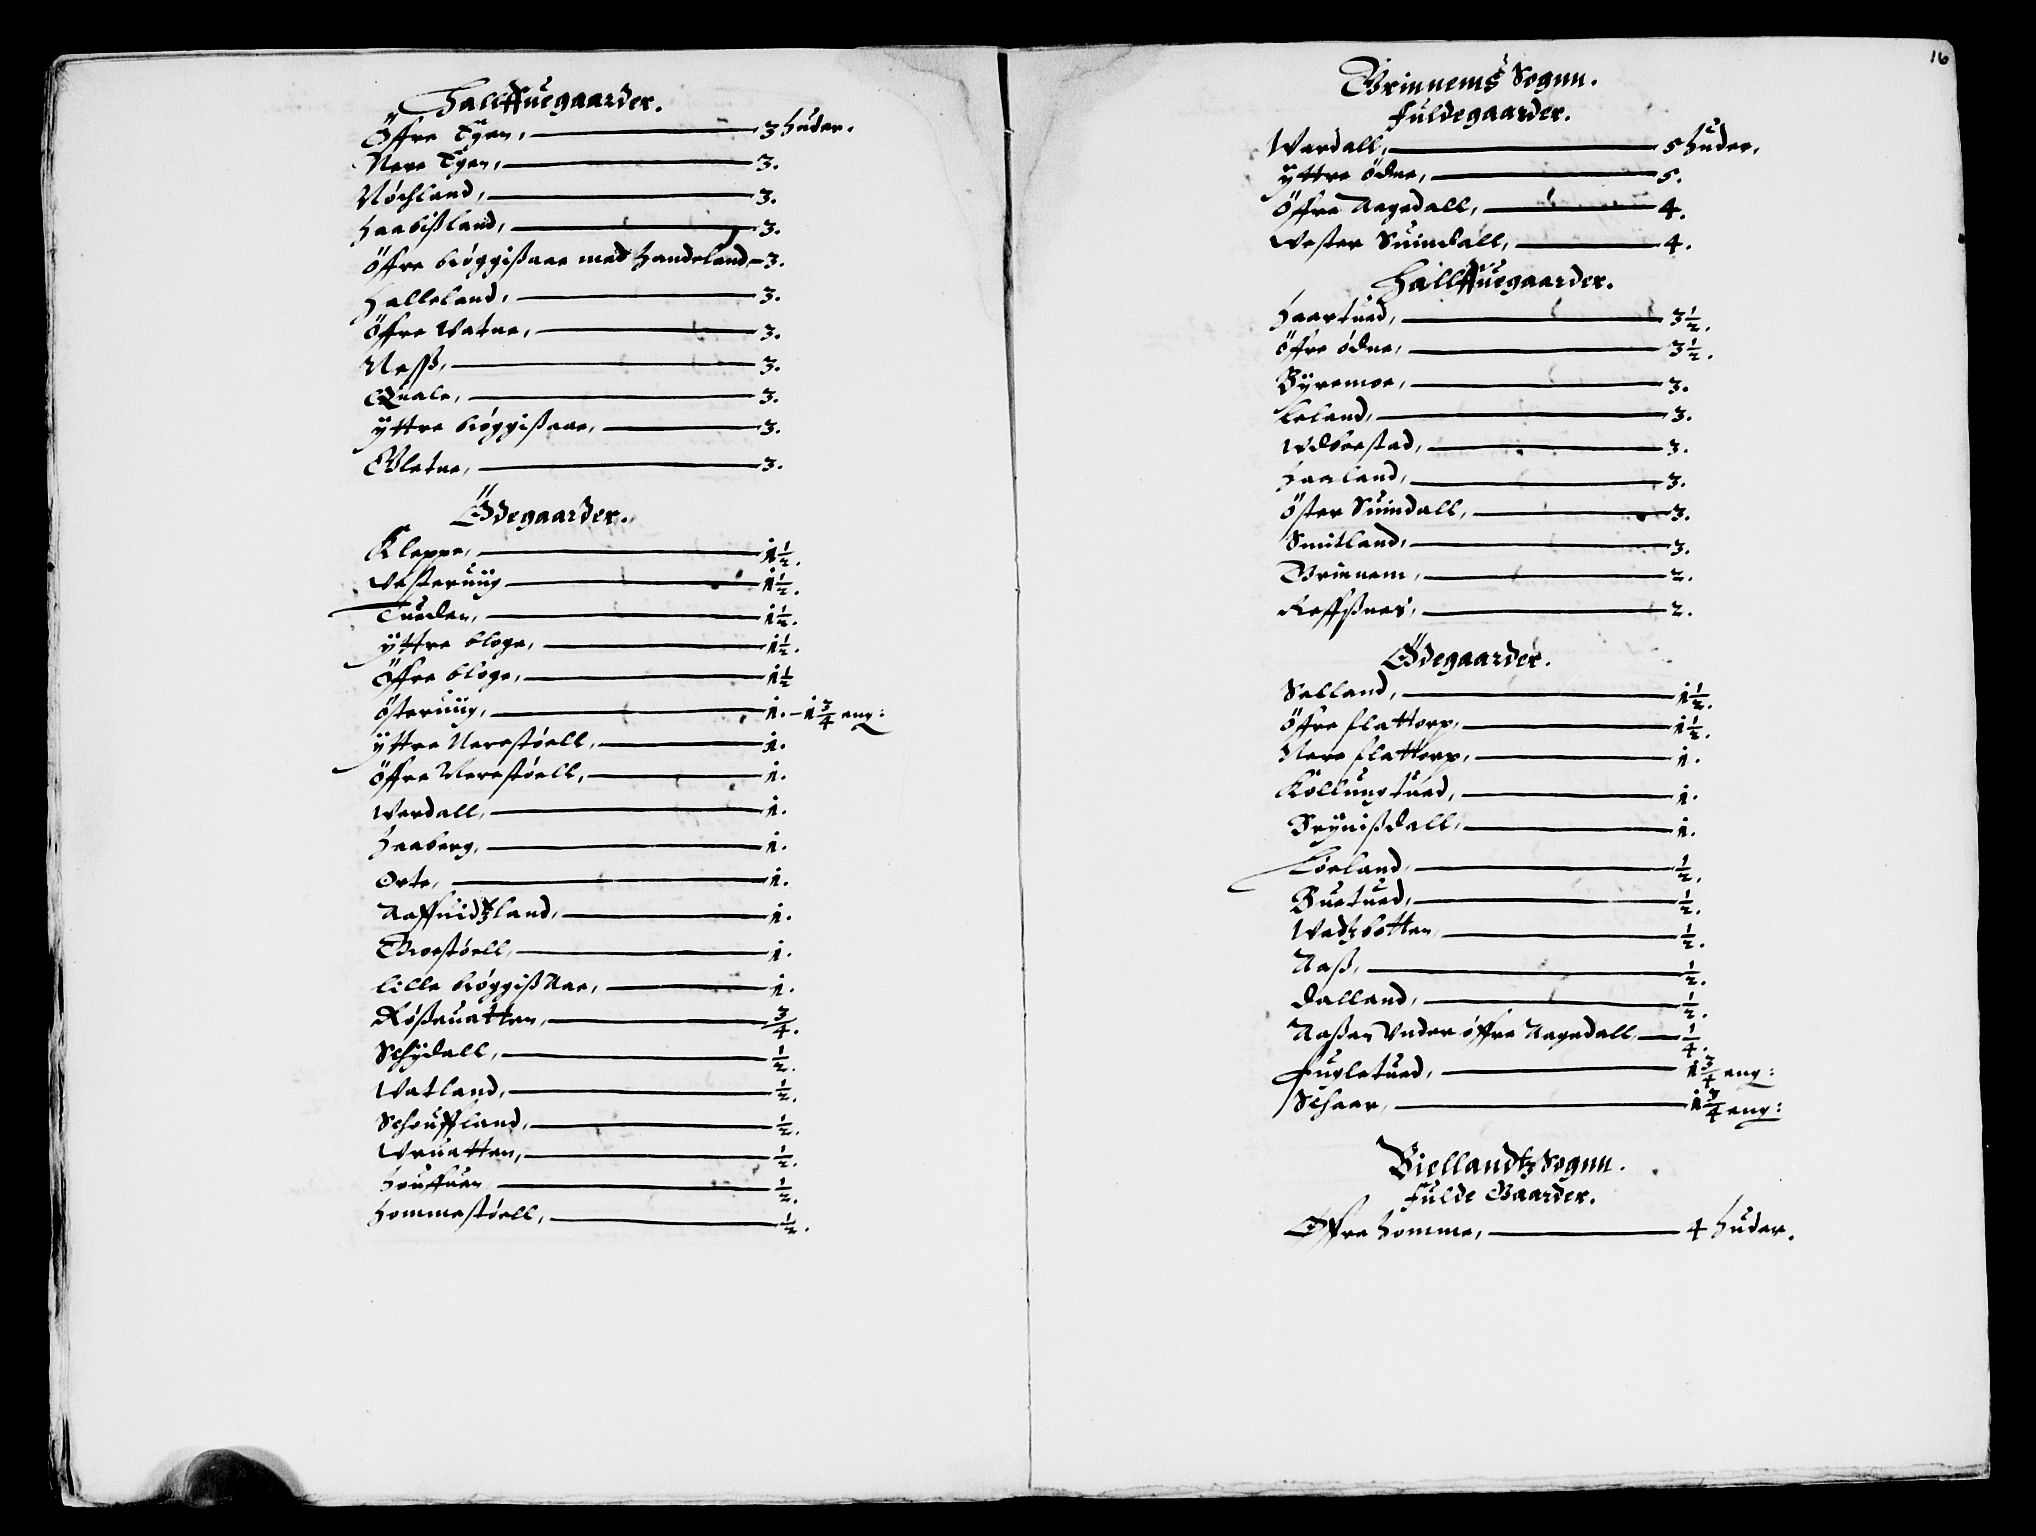 Hallffuegaarder.
Öffre Tÿen, 3 huder.
Nere Tÿen, 3.
Nóchland, 3.
Haabißland, 3.
Öffre bióggißaae med Handeland, 3.
Halleland, 3.
Öffre Watne, 3.
Neß, 3.
Quale, 3.
ÿttre bióggißaae, 3.
Gletne, 3.
Ödegaarder.
Kleppe, 1½.
Vesteruiig 1½.
Tueden, 1½.
ÿttre bloge, 1½.
Öffre bloge, 1½
Österuiig, 1. – 1¾ eng:
ÿttre Nerestóell, 1.
Öffre Nerestóell, 1.
Werdall, 1.
Haaberg, 1.
Orte, 1.
Aaffnidtzland, 1.
Groestóell, 1.
Lille bióggißAae, 1.
Rößeuatten, ¾.
Schÿdall, ½.
Watland, ½.
Schouffland, ½.
Vruatten, ½.
Houffuen ½.
Hommestóell, ½.
16
Grinnems Sogn.
Fuldegaarder.
Werdall, 5 huder,
ÿttre Ödne, 5.
Öffre Aagedall, 4.
Vester Suindall, 4.
Hallffuegaarder.
Haartued, 3½.
Öfre ódne, 3½.
Bÿremoe, 3.
Leland, 3.
Vdbrestad, 3.
Haaland, 3.
Öster Suindall, 3.
Smitland, 3.
Grinnem, 2.
Reffßnes, 2.
Ödegaarder.
Selland, 1½.
Öfre flattorp, 1½.
Nere flattorp, 1.
Köllungtued, 1.
Brÿnißdall, 1.
Lóeland, ½.
Buetued, ½.
Wadtzbotten ½.
Aaß, ½.
Dalland, ½.
Aaßen Vnder öffre Aagedall, ¼.
Fugletued, 1¾ eng:
Schaar, 1¾ eng:
Biellandtz Sogn.
Fulde Gaarder.
Öffre Homme, 4 huder.